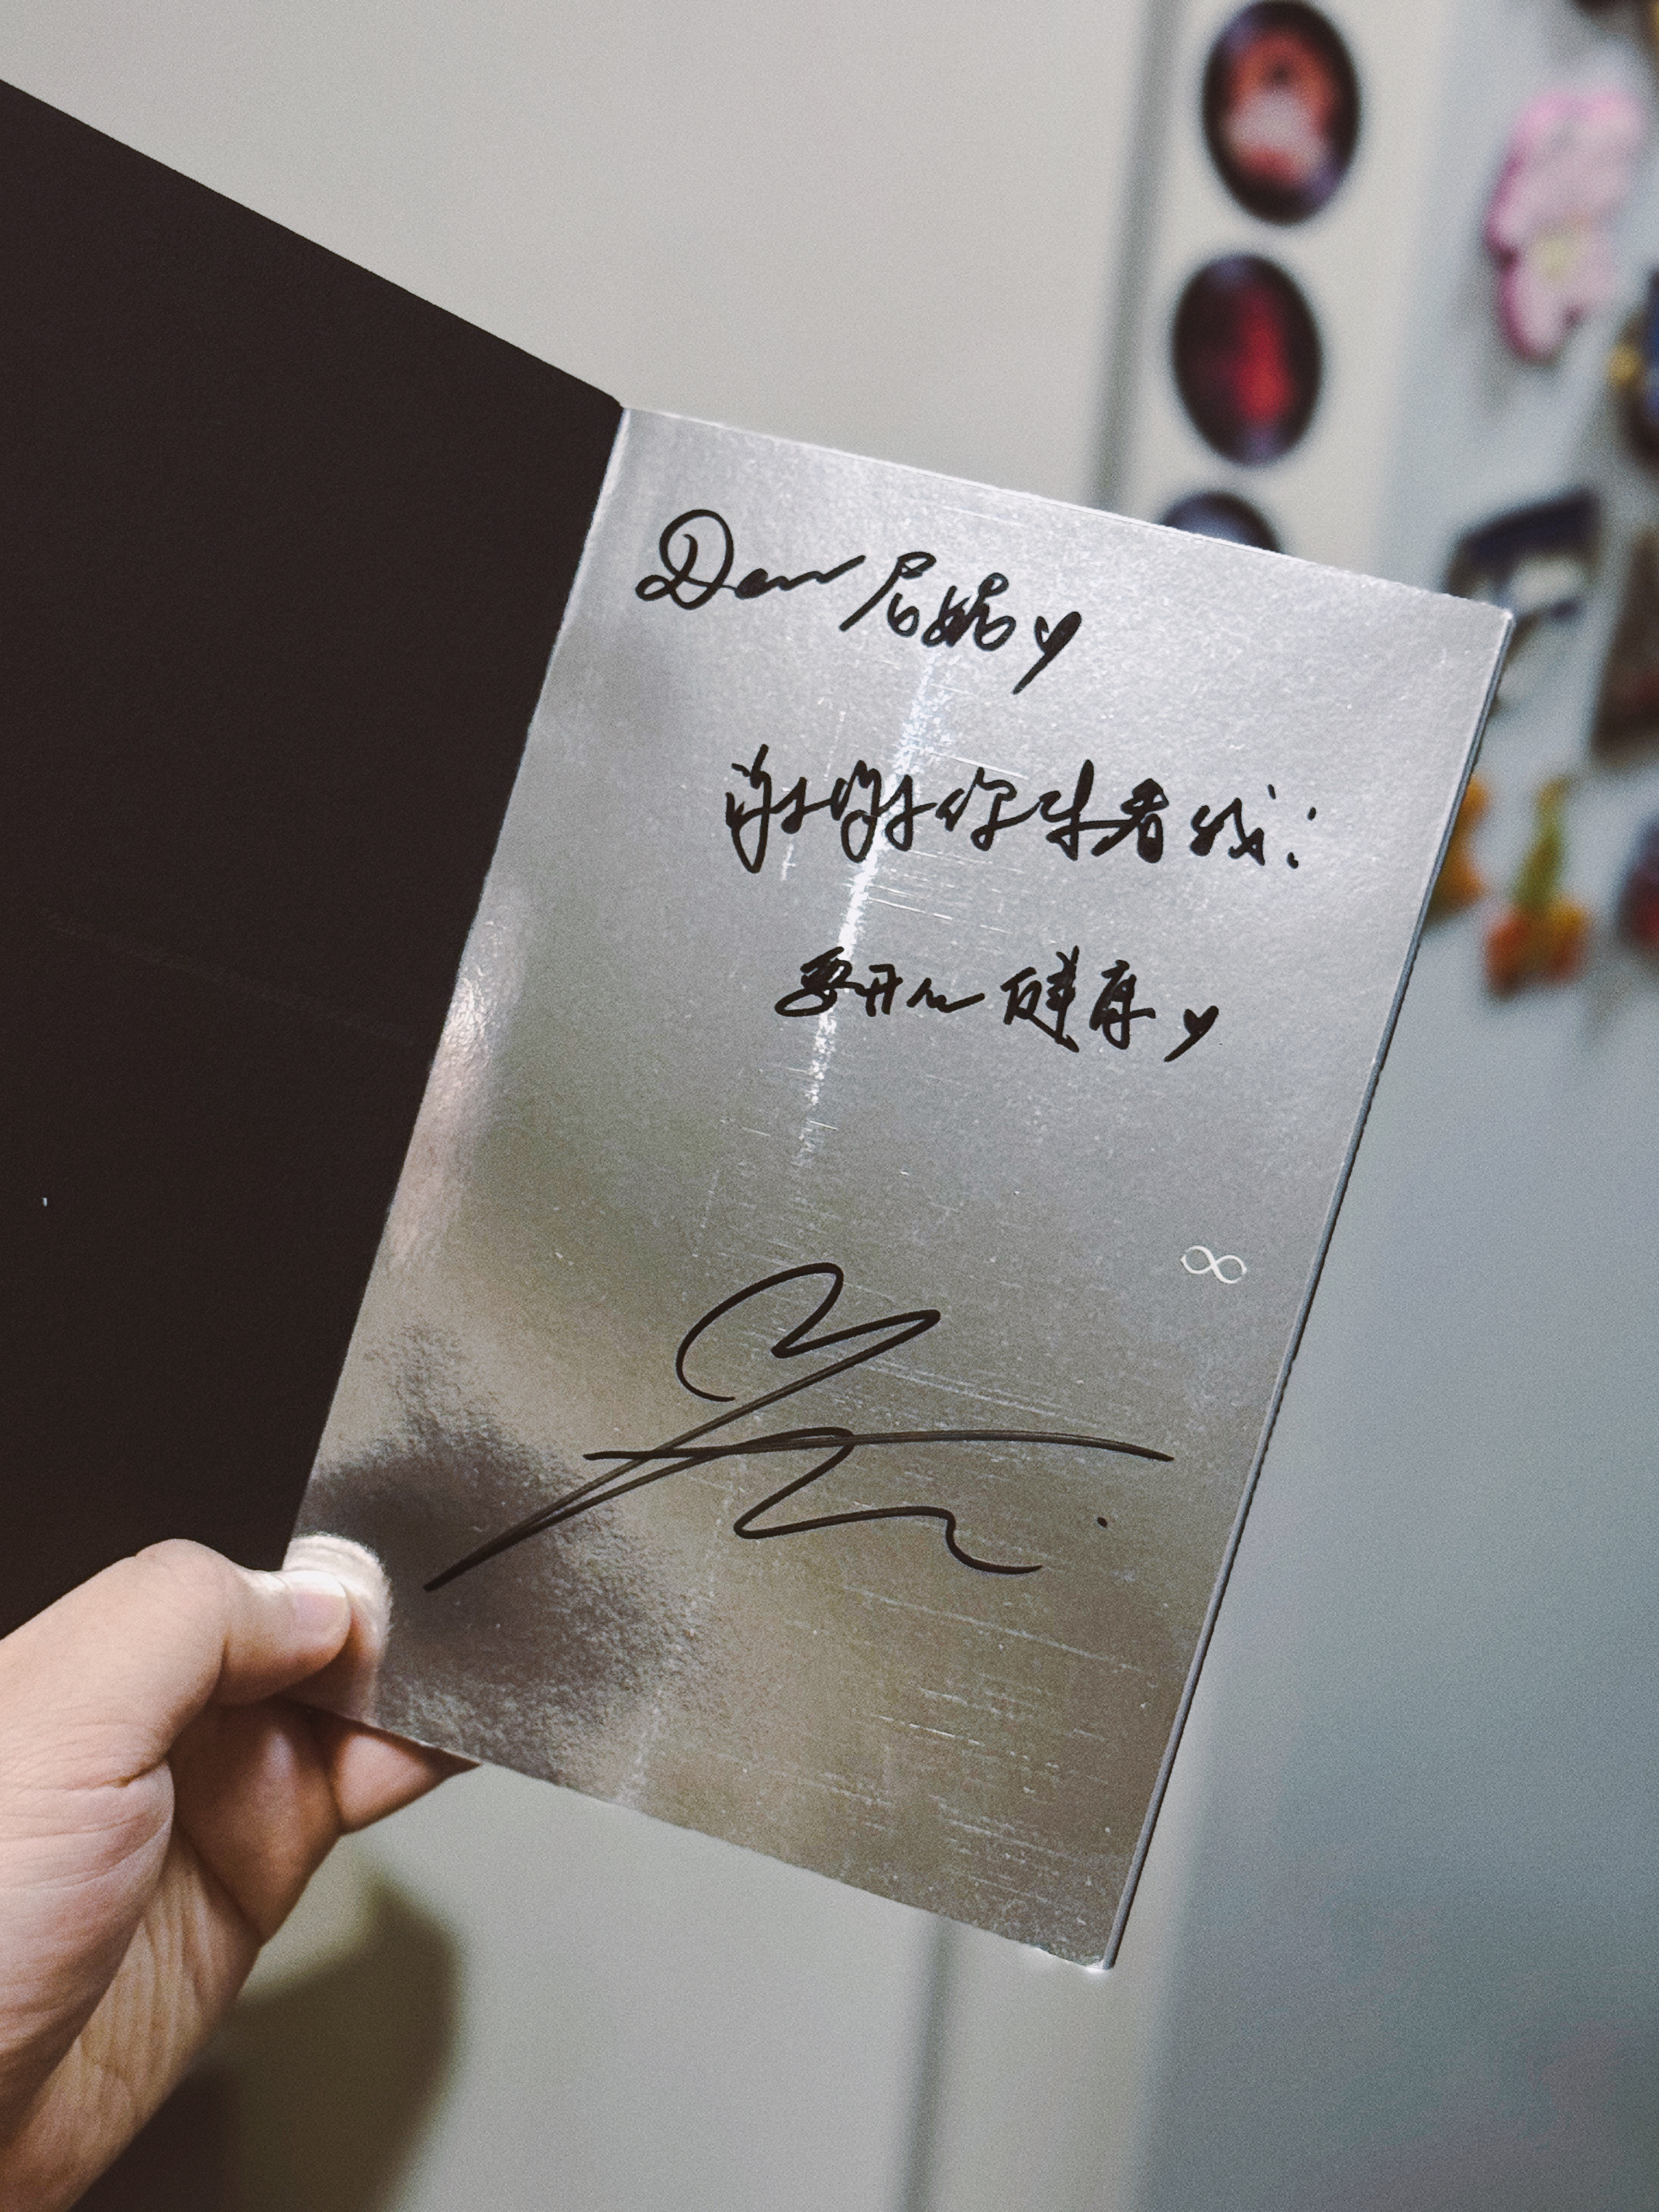 Dear
谢谢你来看我:
要开心健康
∞